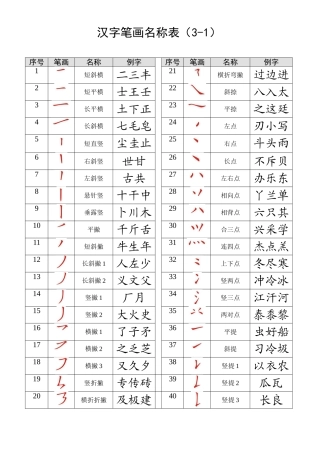 汉字笔画名称表（3-1）
序号 笔画 名称 例字 序号 笔画 名称 例字
1 短斜横 二三丰 21 横折弯撇 过边进
2 短平横 士王壬 22 斜捺 八入太
3 长平横 土下正 23 平捺 之这廷
4 长斜横 七毛皂 24 右点 刃小写
5 短直竖 尘圭止 25 左点 斗头雨
6 右斜竖 世甘 26 长点 不斥贝
7 左斜竖 古共 27 左右点 办乐东
8 悬针竖 十干中 28 相向点 丫兰单
9 垂露竖 卜川木 29 相背点 六只其
10 平撇 千壬丢 30 合三点 兴学兴
11 短斜撇 牛生年 31 连四点 杰点羔
12 长斜撇1 人左少 32 上下点 冬尽寒
13 长斜撇2 九文丈 33 竖两点 冲冷冰
14 竖撇1 厂月 34 竖三点 江汗河
15 竖撇2 大火史 35 两对点 泰黍黎
16 横撇1 了子矛 36 平提 虫好船
17 横撇2 之乏芝 37 斜提 习冷级
18 横撇3 又久夕 38 竖提1 以衣农
19 竖折撇 专传砖 39 竖提2 瓜瓦
20 横折折撇 及极建 40 竖提3 长良